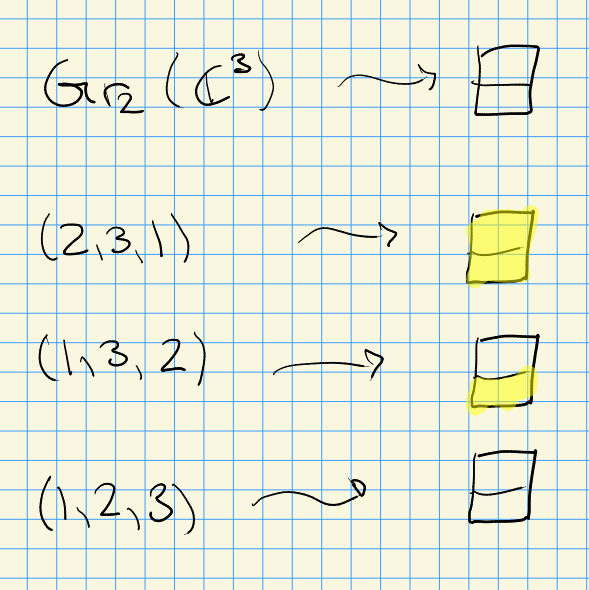 Gr₂(ℂ³)
(2,3,1)
(1,3,2)
(1,2,3)